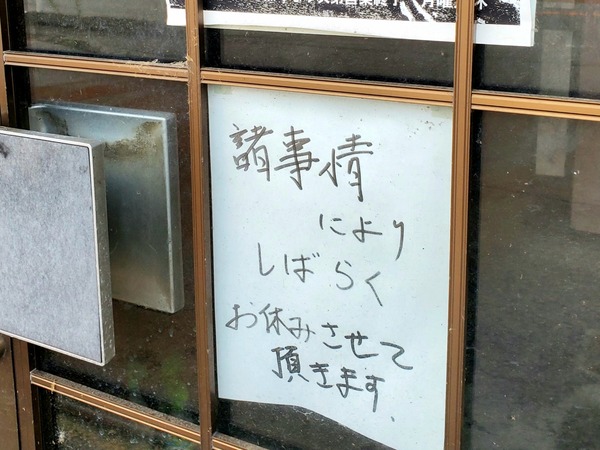 諸事情
により
しばらく
お休みさせて
頂きます.